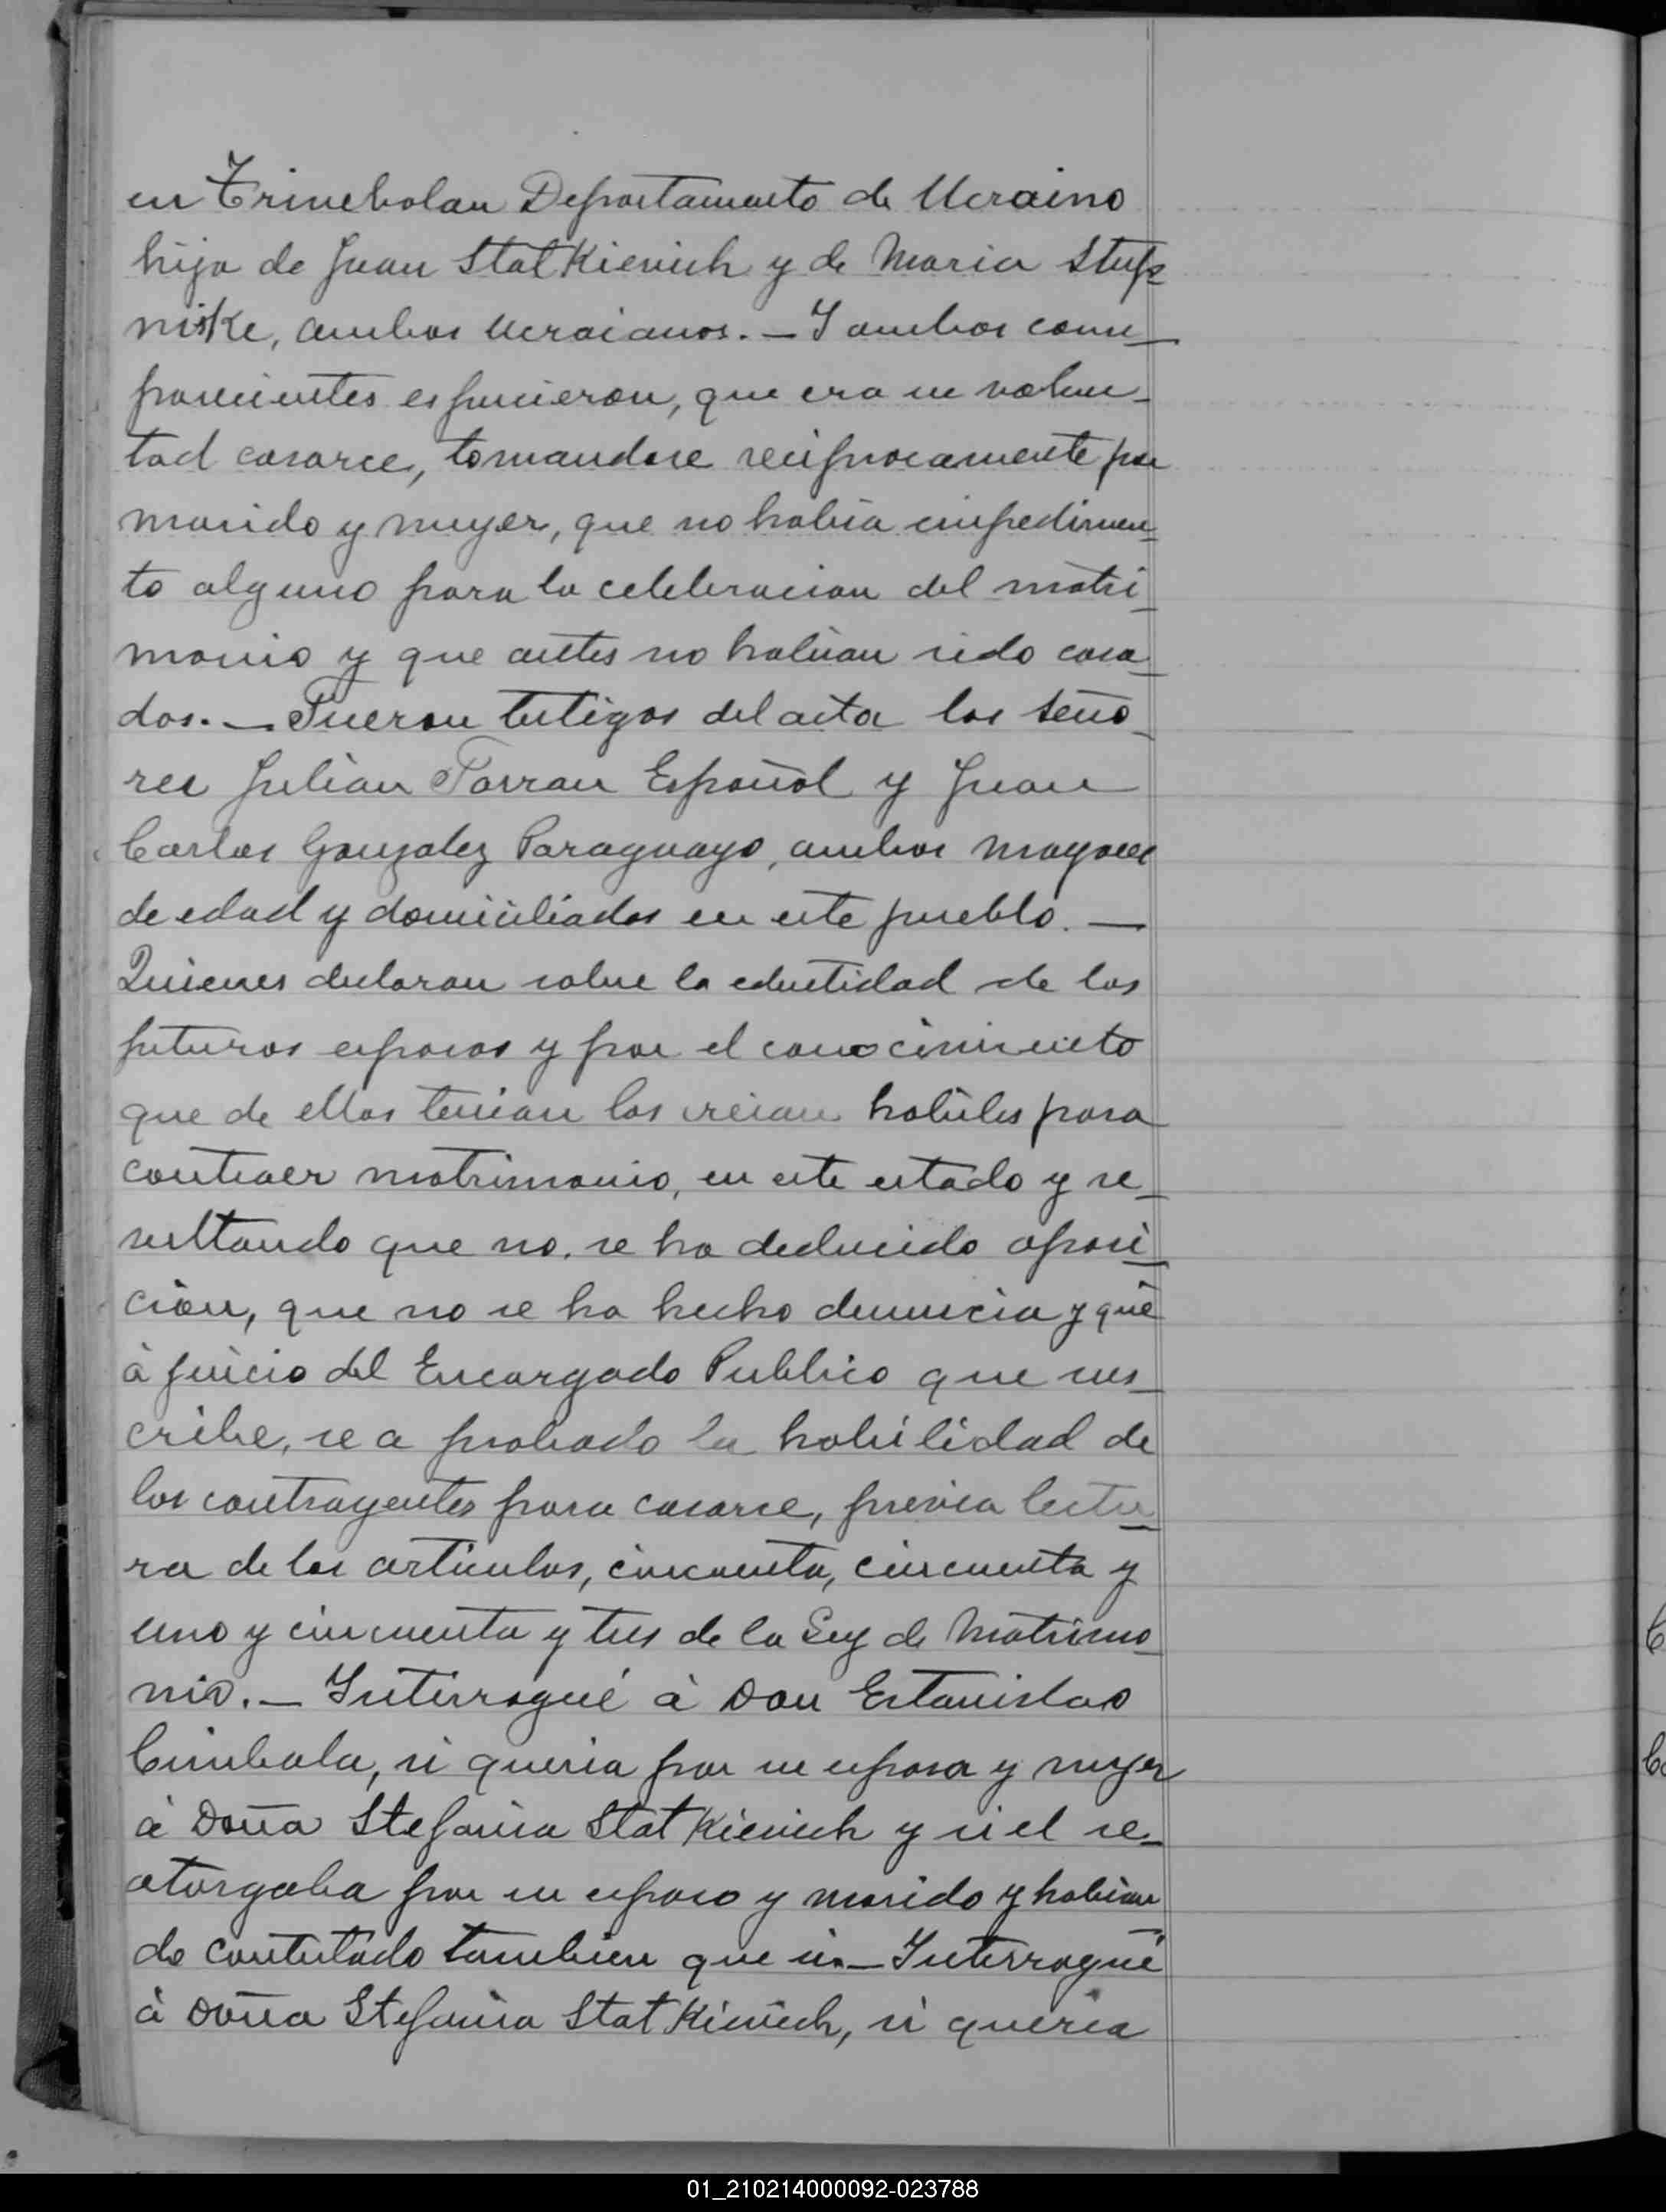 en Trinebolan Departamento de Ucraino
hija de Juan Stat Kievich y de Maria Stup
niske, ambos Ucraianos. — Y ambos com_
parecientes espucieron, que era su volun_
tad casarce, tomandose reciprocamente por
marido y muyer, que no habia empedimen_
to alguno para la celebracion del matri_
monio y que antes no habian sido casa_
dos. — Fueron testigos del acta los seño_
res Julian Tarran Español y Juan
Carlos Gonzalez Paraguayo, ambos mayores
de edad y domiciliados en este pueblo. —
Quienes declaran sobre la edentidad de los
futuros esposos y por el conocimiento
que de ellos tenian los creian habiles para
contraer matrimonio, en este estado y re_
sultando que no se ha deducido oposi_
ción, que no se ha hecho denuncia y que
à juicio del Encargado Publico que sus_
cribe, se a probado la habilidad de
los contrayentes para casarse, previa lectu_
ra de los articulos, cincuenta, cincuenta y
uno y cincuenta y tres de la Ley de Matrimo_
nio. — Interrogué à Don Estanislao
Cimbala, si queria por su esposa y muyer
à Doña Stefania Stat Kievich y si el se_
otorgaba por su esposo y marido y habien
do contestado tambien que si. — Interrogué
à Doña Stefania Stat Kievich, si queria
01_210214000092-023788